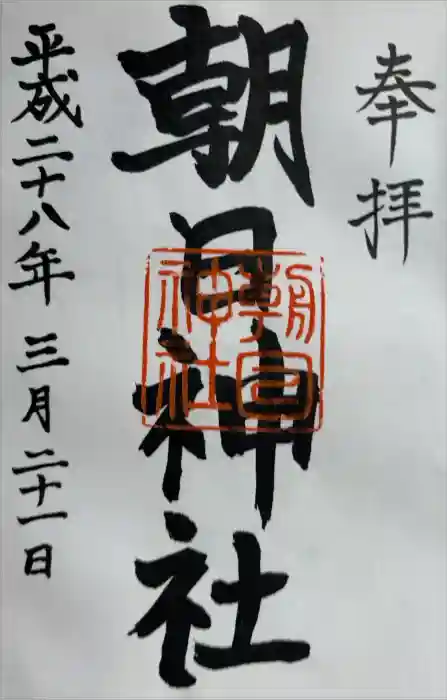 奉拝
朝日神社
朝日
神社
平成二十八年三月二十一日